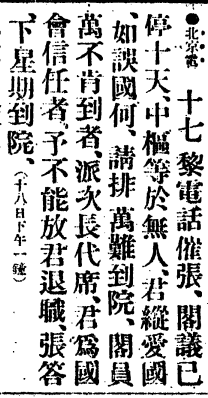 ●北京電　十七黎電話催張、閣議已
停十天、中樞等於無人、君縱愛國
、如誤國何、請排萬難到院、閣員
萬不肯到者、派次長代席、君爲國
會信任者、予不能放君退職、張答
下星期到院、（十八日下午一鐘）